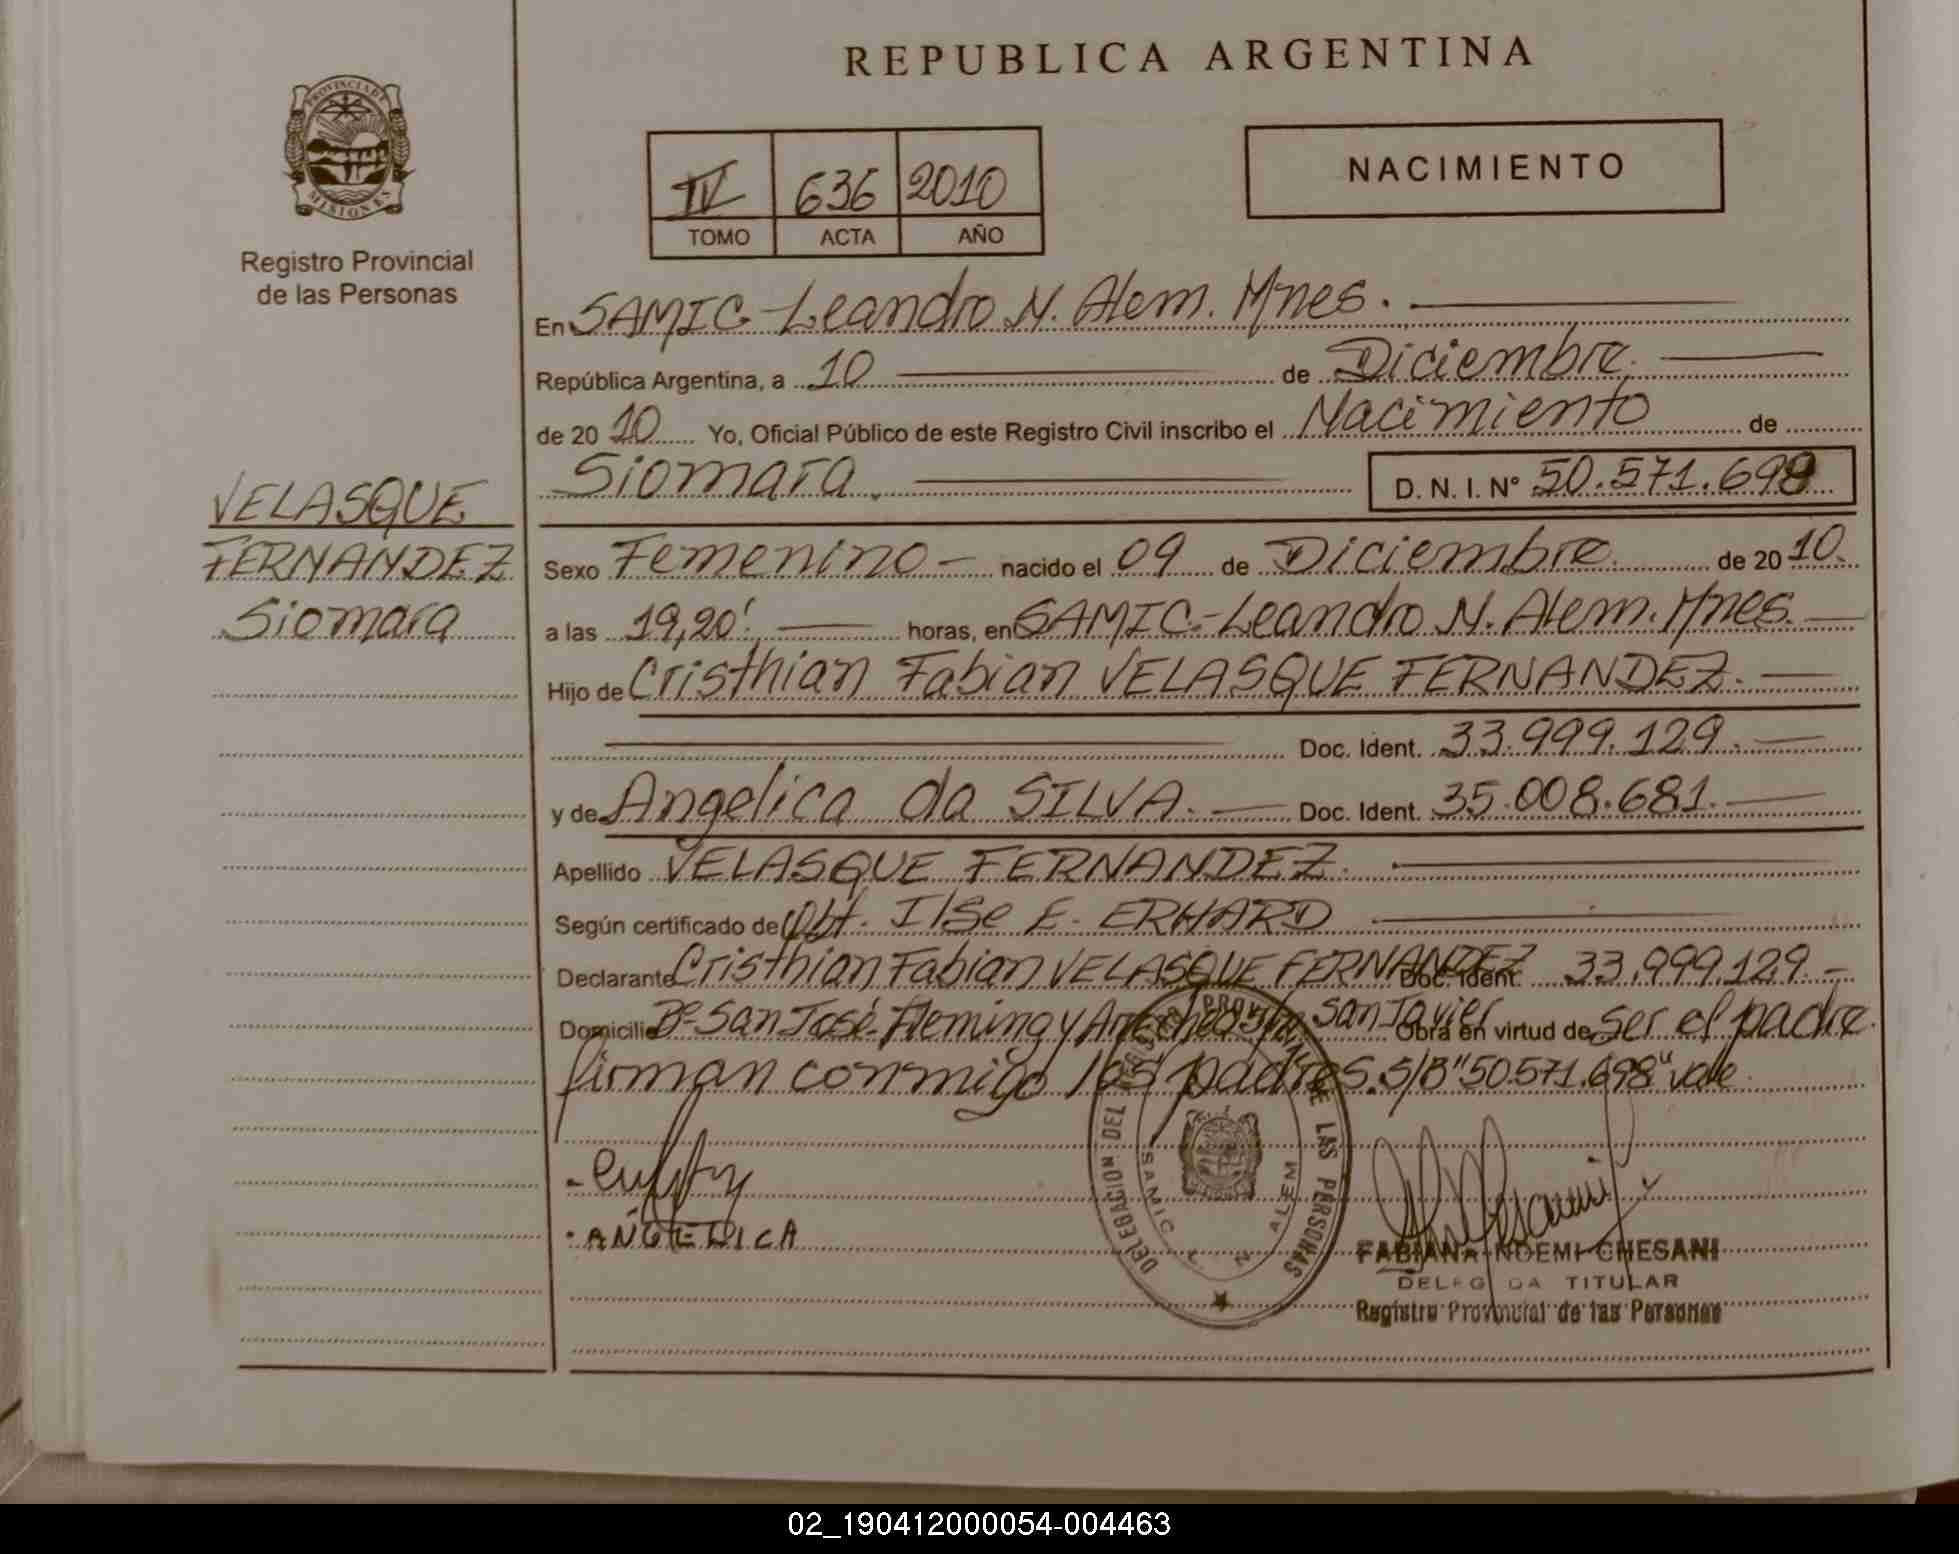 REPUBLICA ARGENTINA
PROVINCIA DE
MISIONES
Registro Provincial
de las Personas
IV 636 2010
TOMO ACTA AÑO
NACIMIENTO
En SAMIC - Leandro N. Alem. Mnes.
República Argentina, a 10 de Diciembre
de 20 10 Yo, Oficial Público de este Registro Civil inscribo el Nacimiento de
Siomara. D. N. I. N° 50.571.698
VELASQUE
FERNANDEZ
Siomara
Sexo Femenino - nacido el 09 de Diciembre de 20 10.
a las 19,20' horas, en SAMIC - Leandro N. Alem. Mnes.
Hijo de Cristhian Fabian VELASQUE FERNANDEZ.
Doc. Ident. 33.999.129.
y de Angelica da SILVA. Doc. Ident. 35.008.681.
Apellido VELASQUE FERNANDEZ.
Según certificado de Obt. Ilse E. ERHARD
Declarante Cristhian Fabian VELASQUE FERNANDEZ Doc. Ident. 33.999.129.-
Domicilio B° San José - Fleming y San Javier Obra en virtud de ser el padre.
firman conmigo los padres. S/B "50.571.698" vale
- ANGELICA
DELEGACION DEL REGISTRO PROVINCIAL DE LAS PERSONAS
SAMIC L. N. ALEM
FABIANA NOEMI CHESANI
DELEG DA TITULAR
Registro Provincial de las Personas
02_190412000054-004463